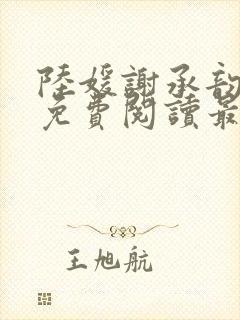 陸媛謝承韵
免費閱讀最
王旭航